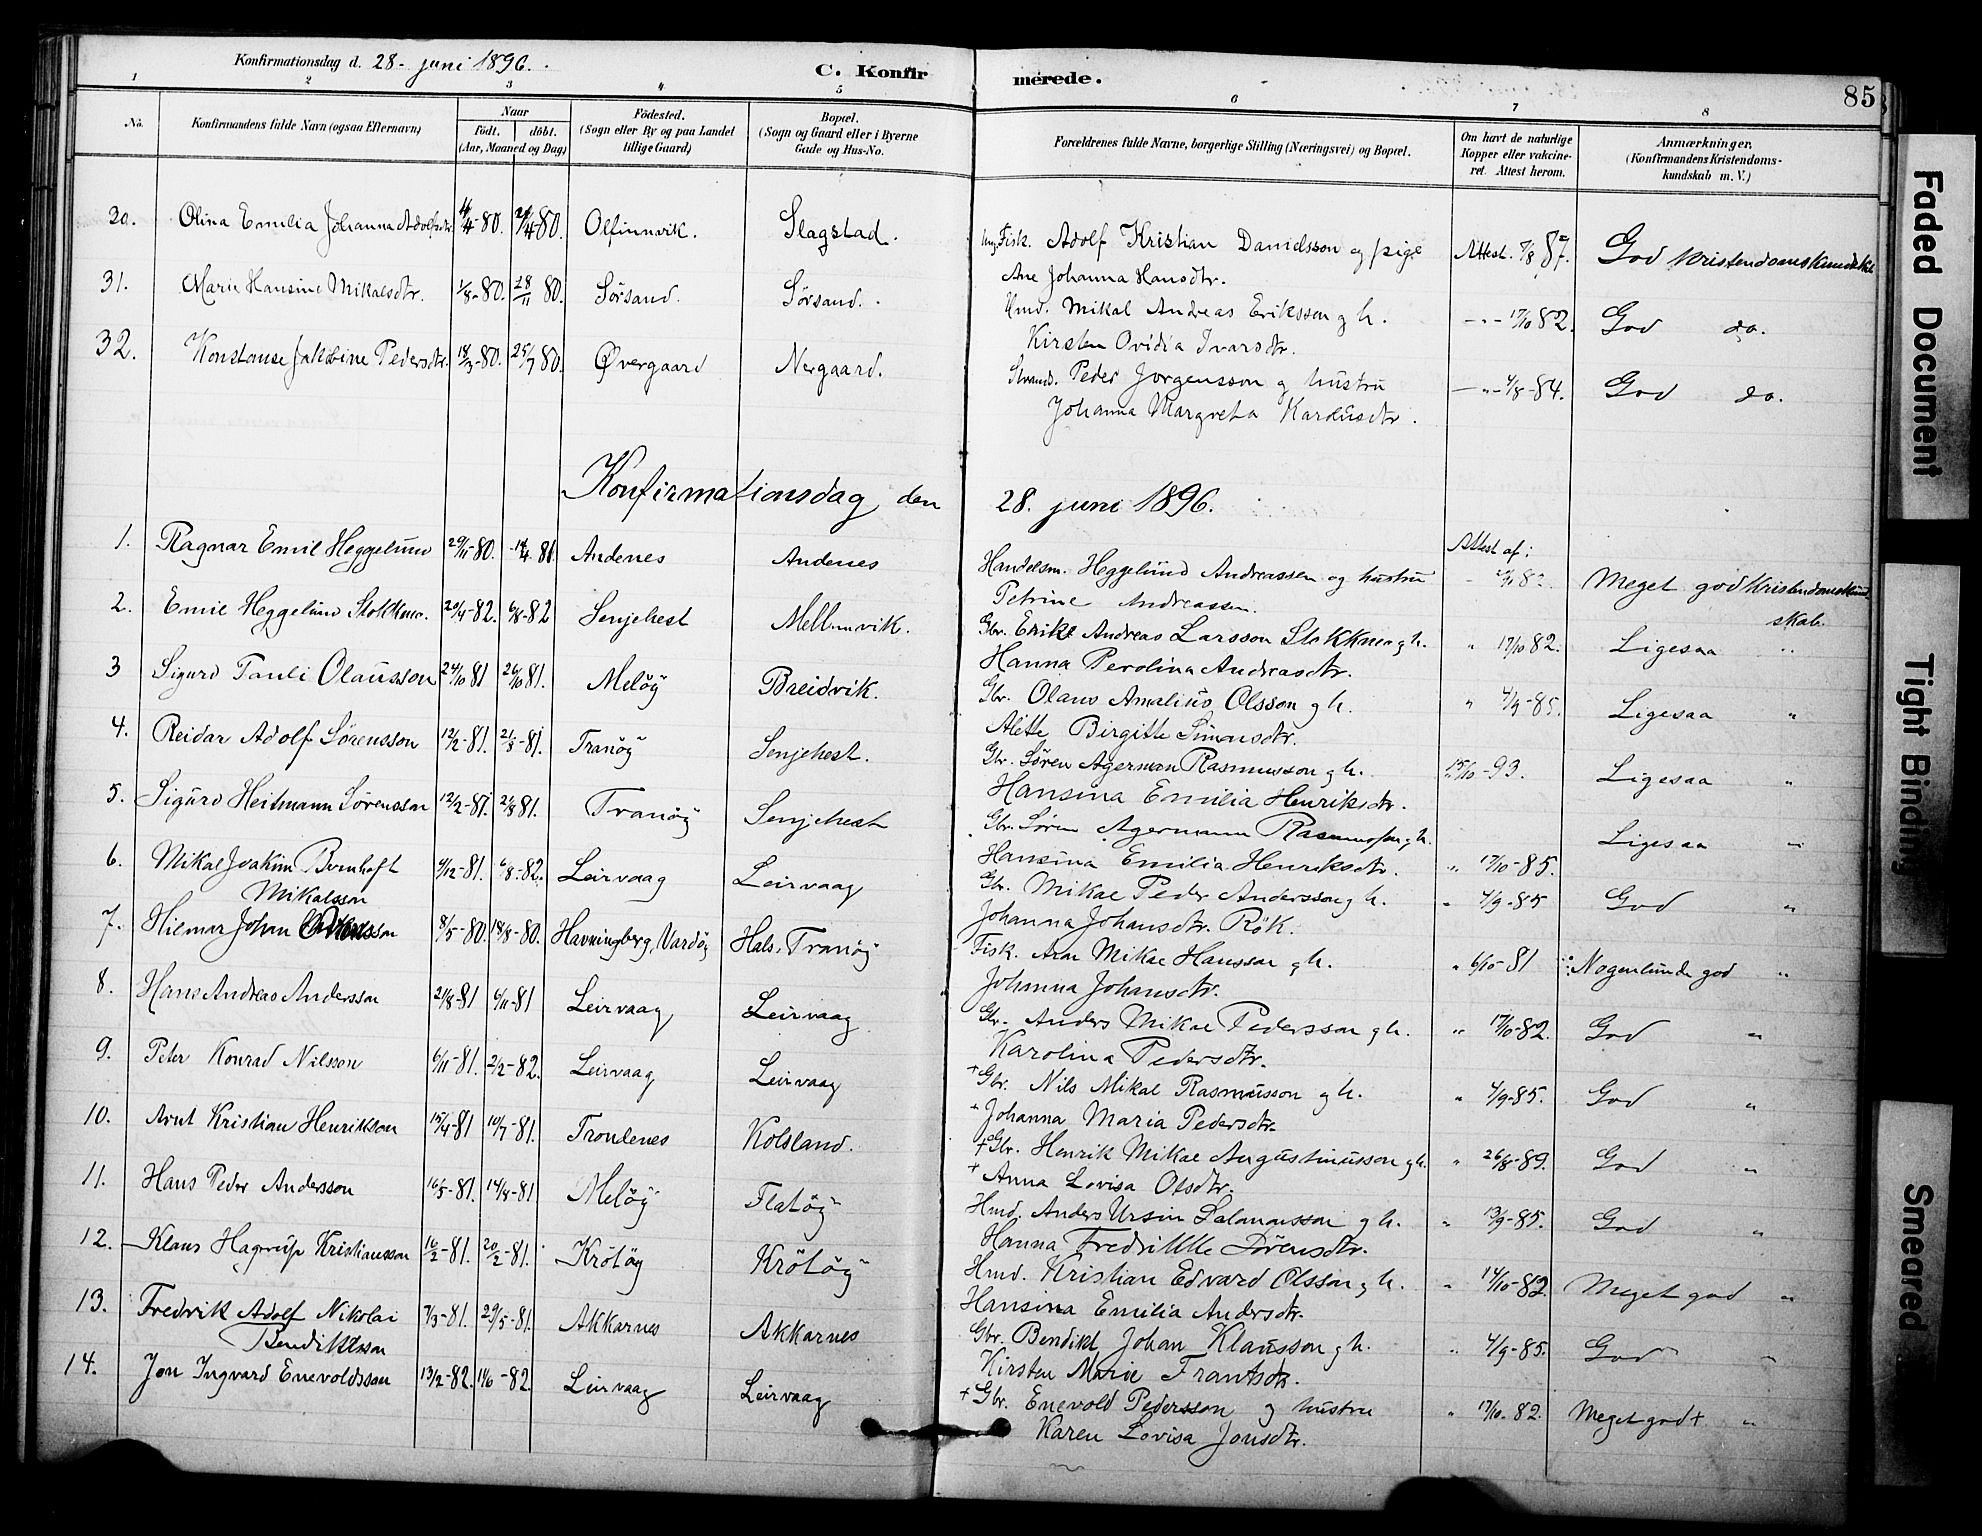 Konfirmationsdag d. 28- juni 1896.
C. Konfirmerede.
85
1 2 3 4 5 6 7 8
No. Konfirmandens fulde Navn (ogsaa Efternavn) Naar født. døbt. (Aar, Maaned og Dag) Fødested. (Sogn eller By og paa Landet tillige Gaard) Bopæl. (Sogn og Gaard eller i Byerne Gade og Hus-No. Forældrenes fulde Navne, borgerlige Stilling (Næringsvei) og Bopæl. Om havt de naturlige Kopper eller vakcineret. Attest herom. Anmærkninger. (Konfirmandens Kristendomskundskab m. V.)
30. Olina Emilia Johanna Adolfsdtr. 80. 80. Olfinnvik. Slagstad. Ung. Fisk. Adolf Kristian Danielsson og pige Attest. 7/8 87. God Kristendomskundskab
Ane Johanna Hansdtr.
31. Marie Hansine Mikalsdtr. 1/8-80. 28/11 80. Sørsand. Sørsand. Hmd. Mikal Andreas Eriksson og h. -"- 17/10 82. God do.
Kirsten Ovidia Ivarsdtr.
32. Konstanse Jakobine Pedersdtr. 18/3-80. 25/7 80. Øvergaard Nergaard. Strand. Peder Jørgensson og hustru -"- 4/8-84. God do.
Johanna Margreta Kardusdtr.
Konfirmationsdag den 28. juni 1896.
Attest af:
1. Ragnar Emil Heggelund 29/11-80. 81. Andenes Andenes Handelsm. Heggelund Andreassen og hustru 82. Meget god Kristendomskundskab.
Petrine Andreassen.
2. Emil Heggelund Stokkmo. 20/4-82. 6/8-82 Senjehest Mellemvik. Gbr. Enike Andreas Larsson Stokkmo og h. " 17/10 82. Ligesaa "
Hanna Perolina Andreasdtr.
3 Sigurd Pauli Olausson 24/10 81 26/10 81. Meløy Breidvik. Gbr. Olaus Amalius Olsson og h. " 4/9-85. Ligesaa "
Alette Birgitte Simonsdtr.
4. Reidar Adolf Sørensson 12/2-81. 21/8-81. Tranøy Senjehest. Gbr. Søren Agerman Rasmusson og h. 15/10-93. Ligesaa "
Hansina Emilia Henriksdtr.
5. Sigurd Heitmann Sørensson 12/2-81. 21/8 81. Tranøy Senjehest Gbr. Søren Agermann Rasmusson og h. Ligesaa "
Hansina Emilia Henriksdtr. " 17/10-85.
6. Mikal Joakim Bernhoft Mikalsson 9/12-81. 6/8-82. Leirvaag Leirvaag Gbr. Mikae Peder Andersson og h. " 4/9-85 God "
Johanna Johansdtr. Røk.
7. Hilmar Johan 8/5-80. 18/8-80. Havningberg, Vardøy Hals, Tranøy Fisk. Aron Mikae Hansson og h. " 6/10-81 Nogenlunde god "
Johanna Johansdtr.
8. Hans Andreas Andersson 21/8-81 6/11-81 Leirvaag Leirvaag Gbr. Anders Mikae Pedersson og h. " 17/10-82. God "
Karolina Pedersdtr.
9. Peter Konrad Nilsson 6/11-81. 2/2-82. Leirvaag Leirvaag + Gbr. Nils Mikal Rasmusson og h. " 4/9-85. God "
Johanna Maria Pedersdtr.
10. Arnt Kristian Henrikson 15/4-81 10/7-81. Trondenes Kolsland. + Gbr. Henrik Mikae Augustinusson og h. " 26/8-89. God "
+ Anna Lovisa Olsdtr.
11. Hans Peder Andersson 16/5-81. 14/8-81 Meløy Flatøy Hmd. Anders Ursin Salomonsson og h. " 13/9-85. God "
Hanna Fredrikke Sørensdtr.
12. Klaus Hagerup Kristiansson 16/2-81. 20/2-81. Krøtøy Krøtøy Hmd. Kristian Edvard Olsson og h. " 14/10-82 Meget god "
Hansina Emilia Andersdtr.
13. Fredrik Adolf Nikolai Bendiktsson 7/3-81. 29/5-81. Akkarnes Akkarnes Gbr. Bendikt Johan Klausson og h. " 4/9-85. God "
Kirsten Marie Frantsdtr.
14. Jon Ingvard Enevoldsson 13/2-82. 11/6-82. Leirvaag Leirvaag + Gbr. Enevold Pedersson og hustru " 17/10.82. Meget god + "
Karen Lovisa Jonsdtr.
Faded Document
Tight Binding
Smeared